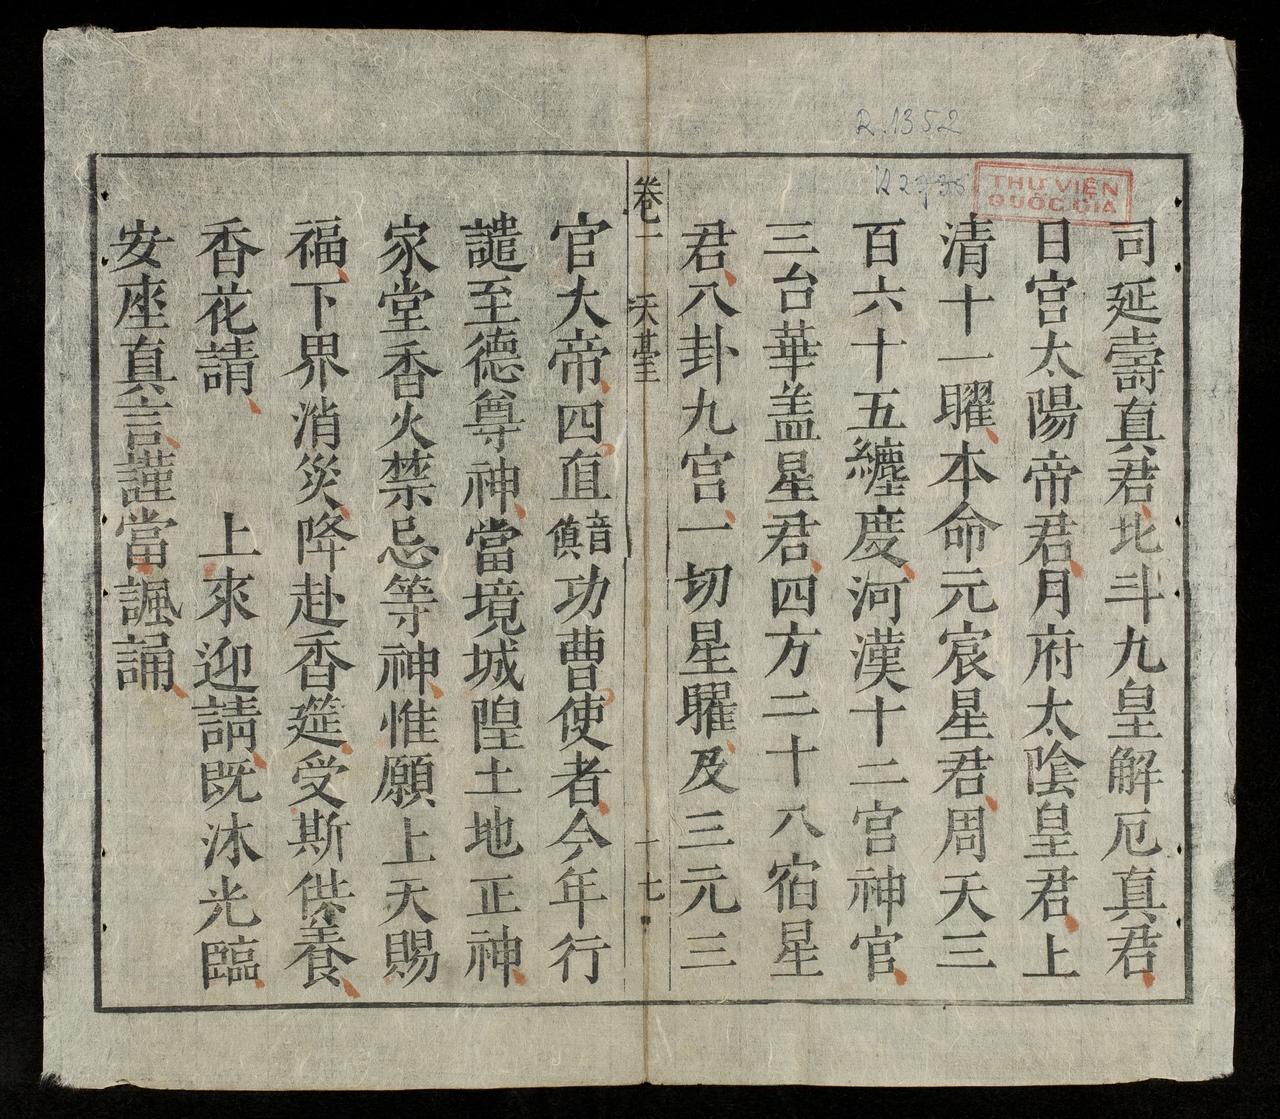 R.1352
THƯ VIỆN
QUỐC GIA
司延壽真君北斗九皇解厄真君
日宮太陽帝君月府太陰皇君上
清十一曜本命元宸星君周天三
百六十五纏度河漢十二宮神官
三台華盖星君四方二十八宿星
君八卦九宮一切星曜及三元三
卷一 天臺 十七
官大帝四直音慎功曹使者今年行
譴至德尊神當境城隍土地正神
家堂香火禁忌等神惟願上天賜
福下界消災降赴香筵受斯供養
香花請 上來迎請既沐光臨
安座真言謹當諷誦